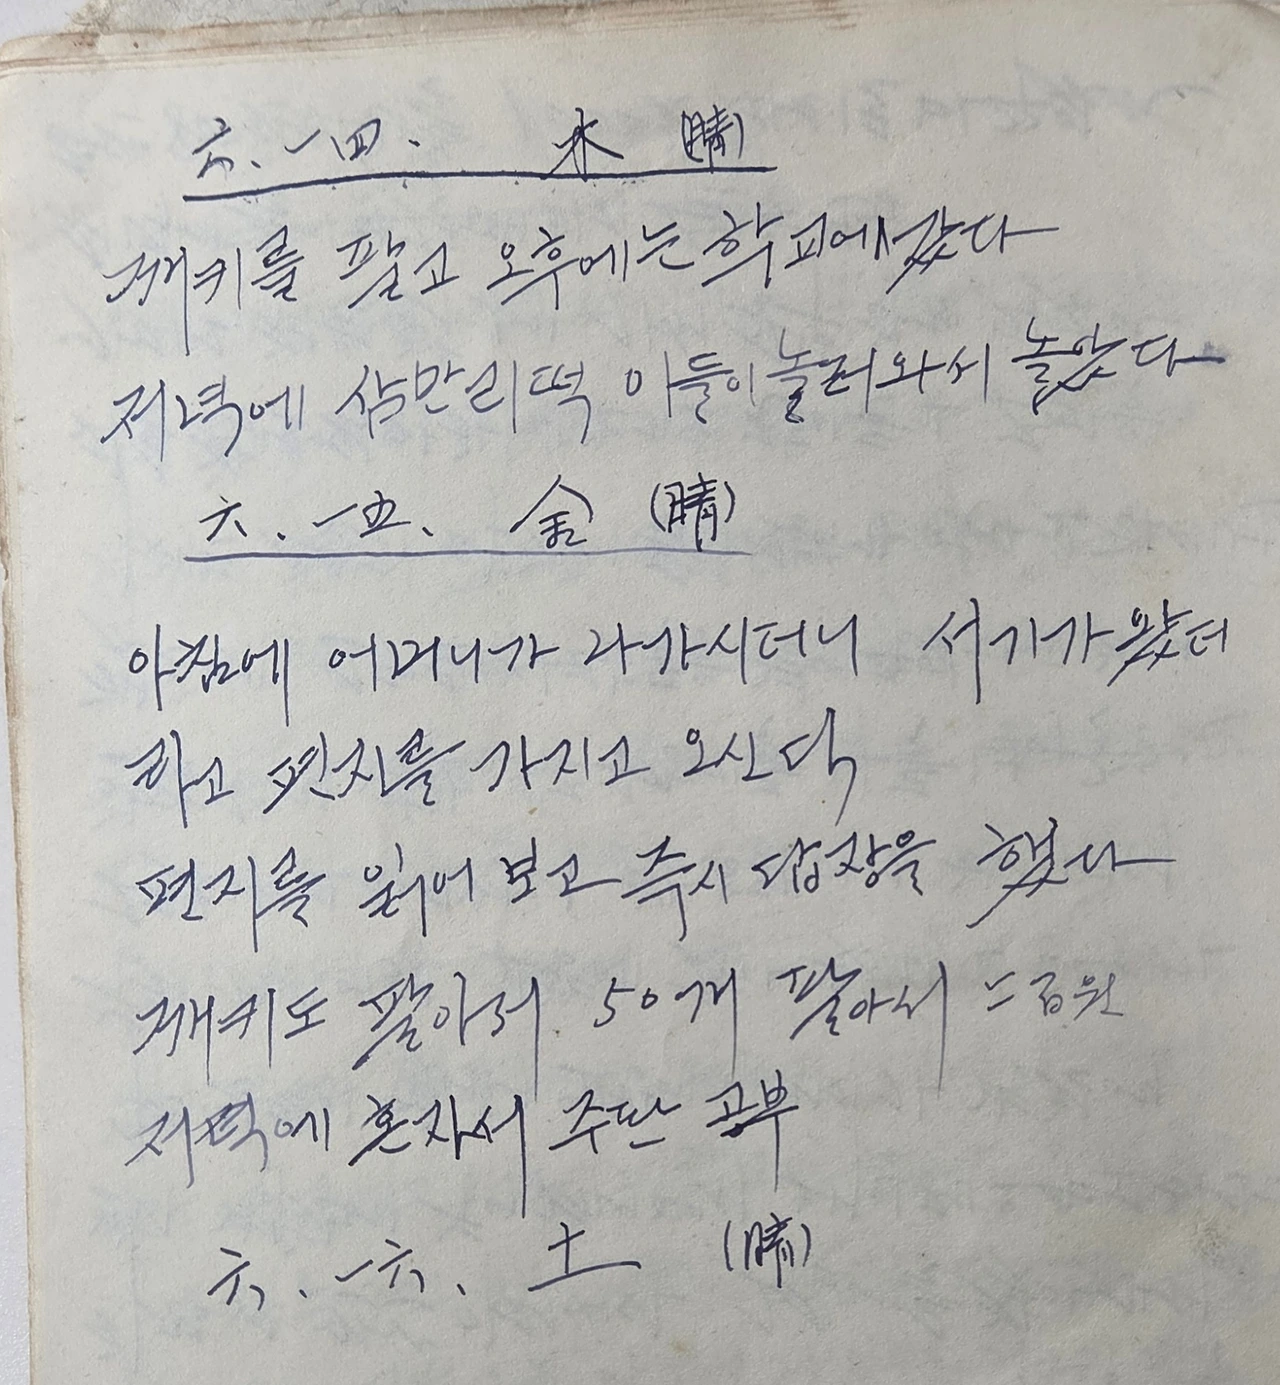 六. 一四. 木 (晴)
깨키를 팔고 오후에는 학교에 갔다
저녁에 삼만리떡 아들이 놀러와서 놀았다
六. 一五. 金 (晴)
아침에 어머니가 나가시더니 서기가 왔더
라고 편지를 가지고 오신다
편지를 읽어 보고 즉시 답장을 했다
깨키도 팔아서 50개 팔아서
저녁에 혼자서 주판 공부
六. 一六. 土 (晴)